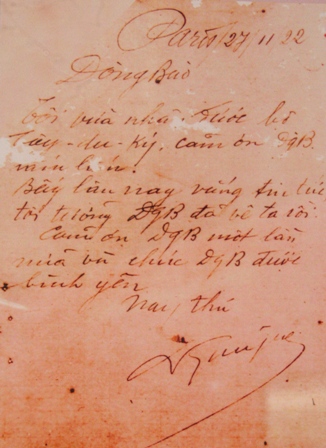 Paris, 27/11/22
Đồng Bào
Tôi vừa nhận được bộ
Tây-du-ký, cảm ơn ĐgB
Bấy lâu nay vắng tin tức
tôi tưởng ĐgB đã về ta rồi.
Cảm ơn ĐgB một lần
nữa và chúc ĐgB được
bình yên
Nay thư